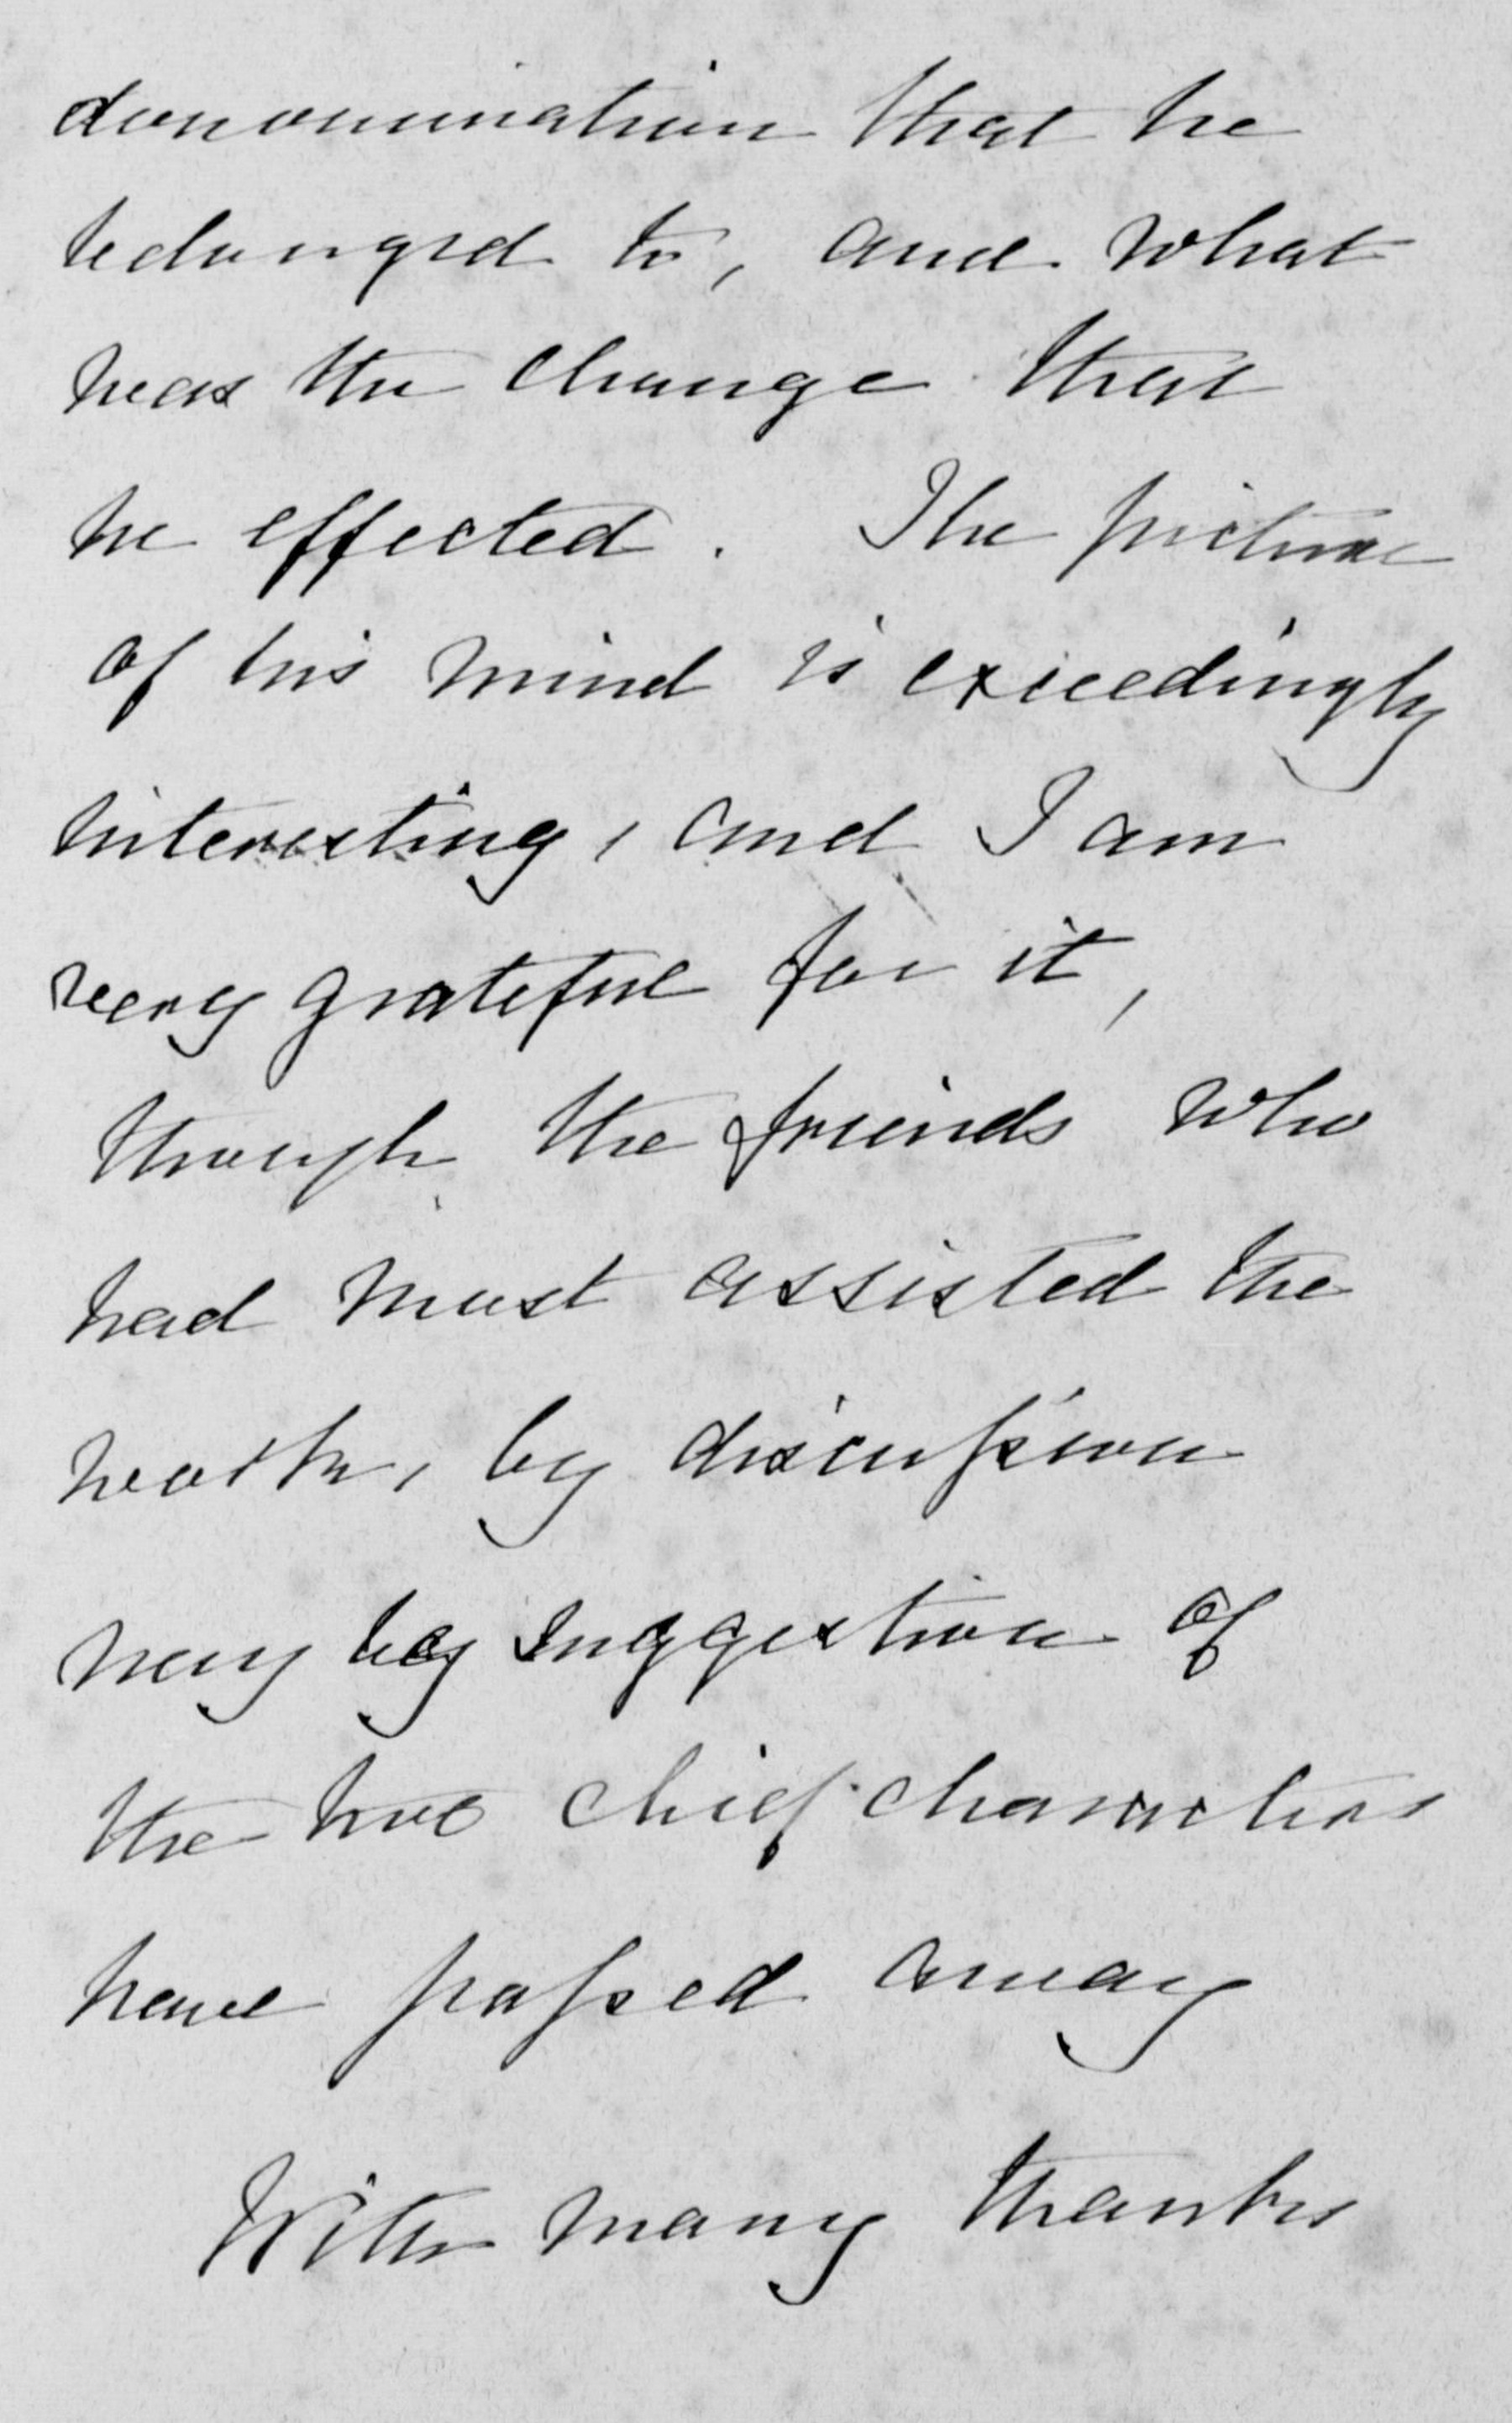 denomination that he
belonged to, and what
was the change that
he effected. The picture
of his mind is exceedingly
interesting, and I am
very grateful for it,
though the friends who
had most assisted the
work, by discussion
nay by suggestion of
the two chief characters
have passed away
With many thanks